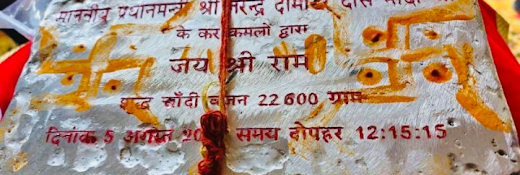 माननीय प्रधानमन्त्री श्री नरेन्द्र दामोदर दास मोदी
के कर कमलों द्वारा
जय श्री राम
शुद्ध चाँदी वजन 22600 ग्राम
दिनांक 5 अगस्त 20 समय दोपहर 12:15:15